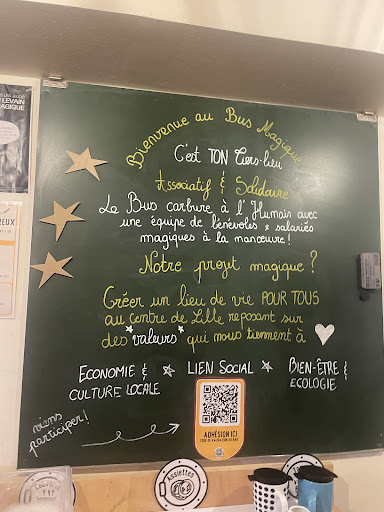 LEVAIN
Bienvenue au Bus Magique
C'est TON tiers-lieu
Associatif & Solidaire
Le Bus carbure à l'Humain avec
une équipe de bénévoles & salariés
magiques à la manœuvre!
Notre projet magique ?
Créer un lieu de vie POUR TOUS
au centre de Lille reposant sur
des "valeurs" qui nous tiennent à
ECONOMIE &
CULTURE LOCALE
LIEN SOCIAL
BIEN-ÊTRE &
ECOLOGIE
viens
participer!
ADHÉSION ICI
Assiettes